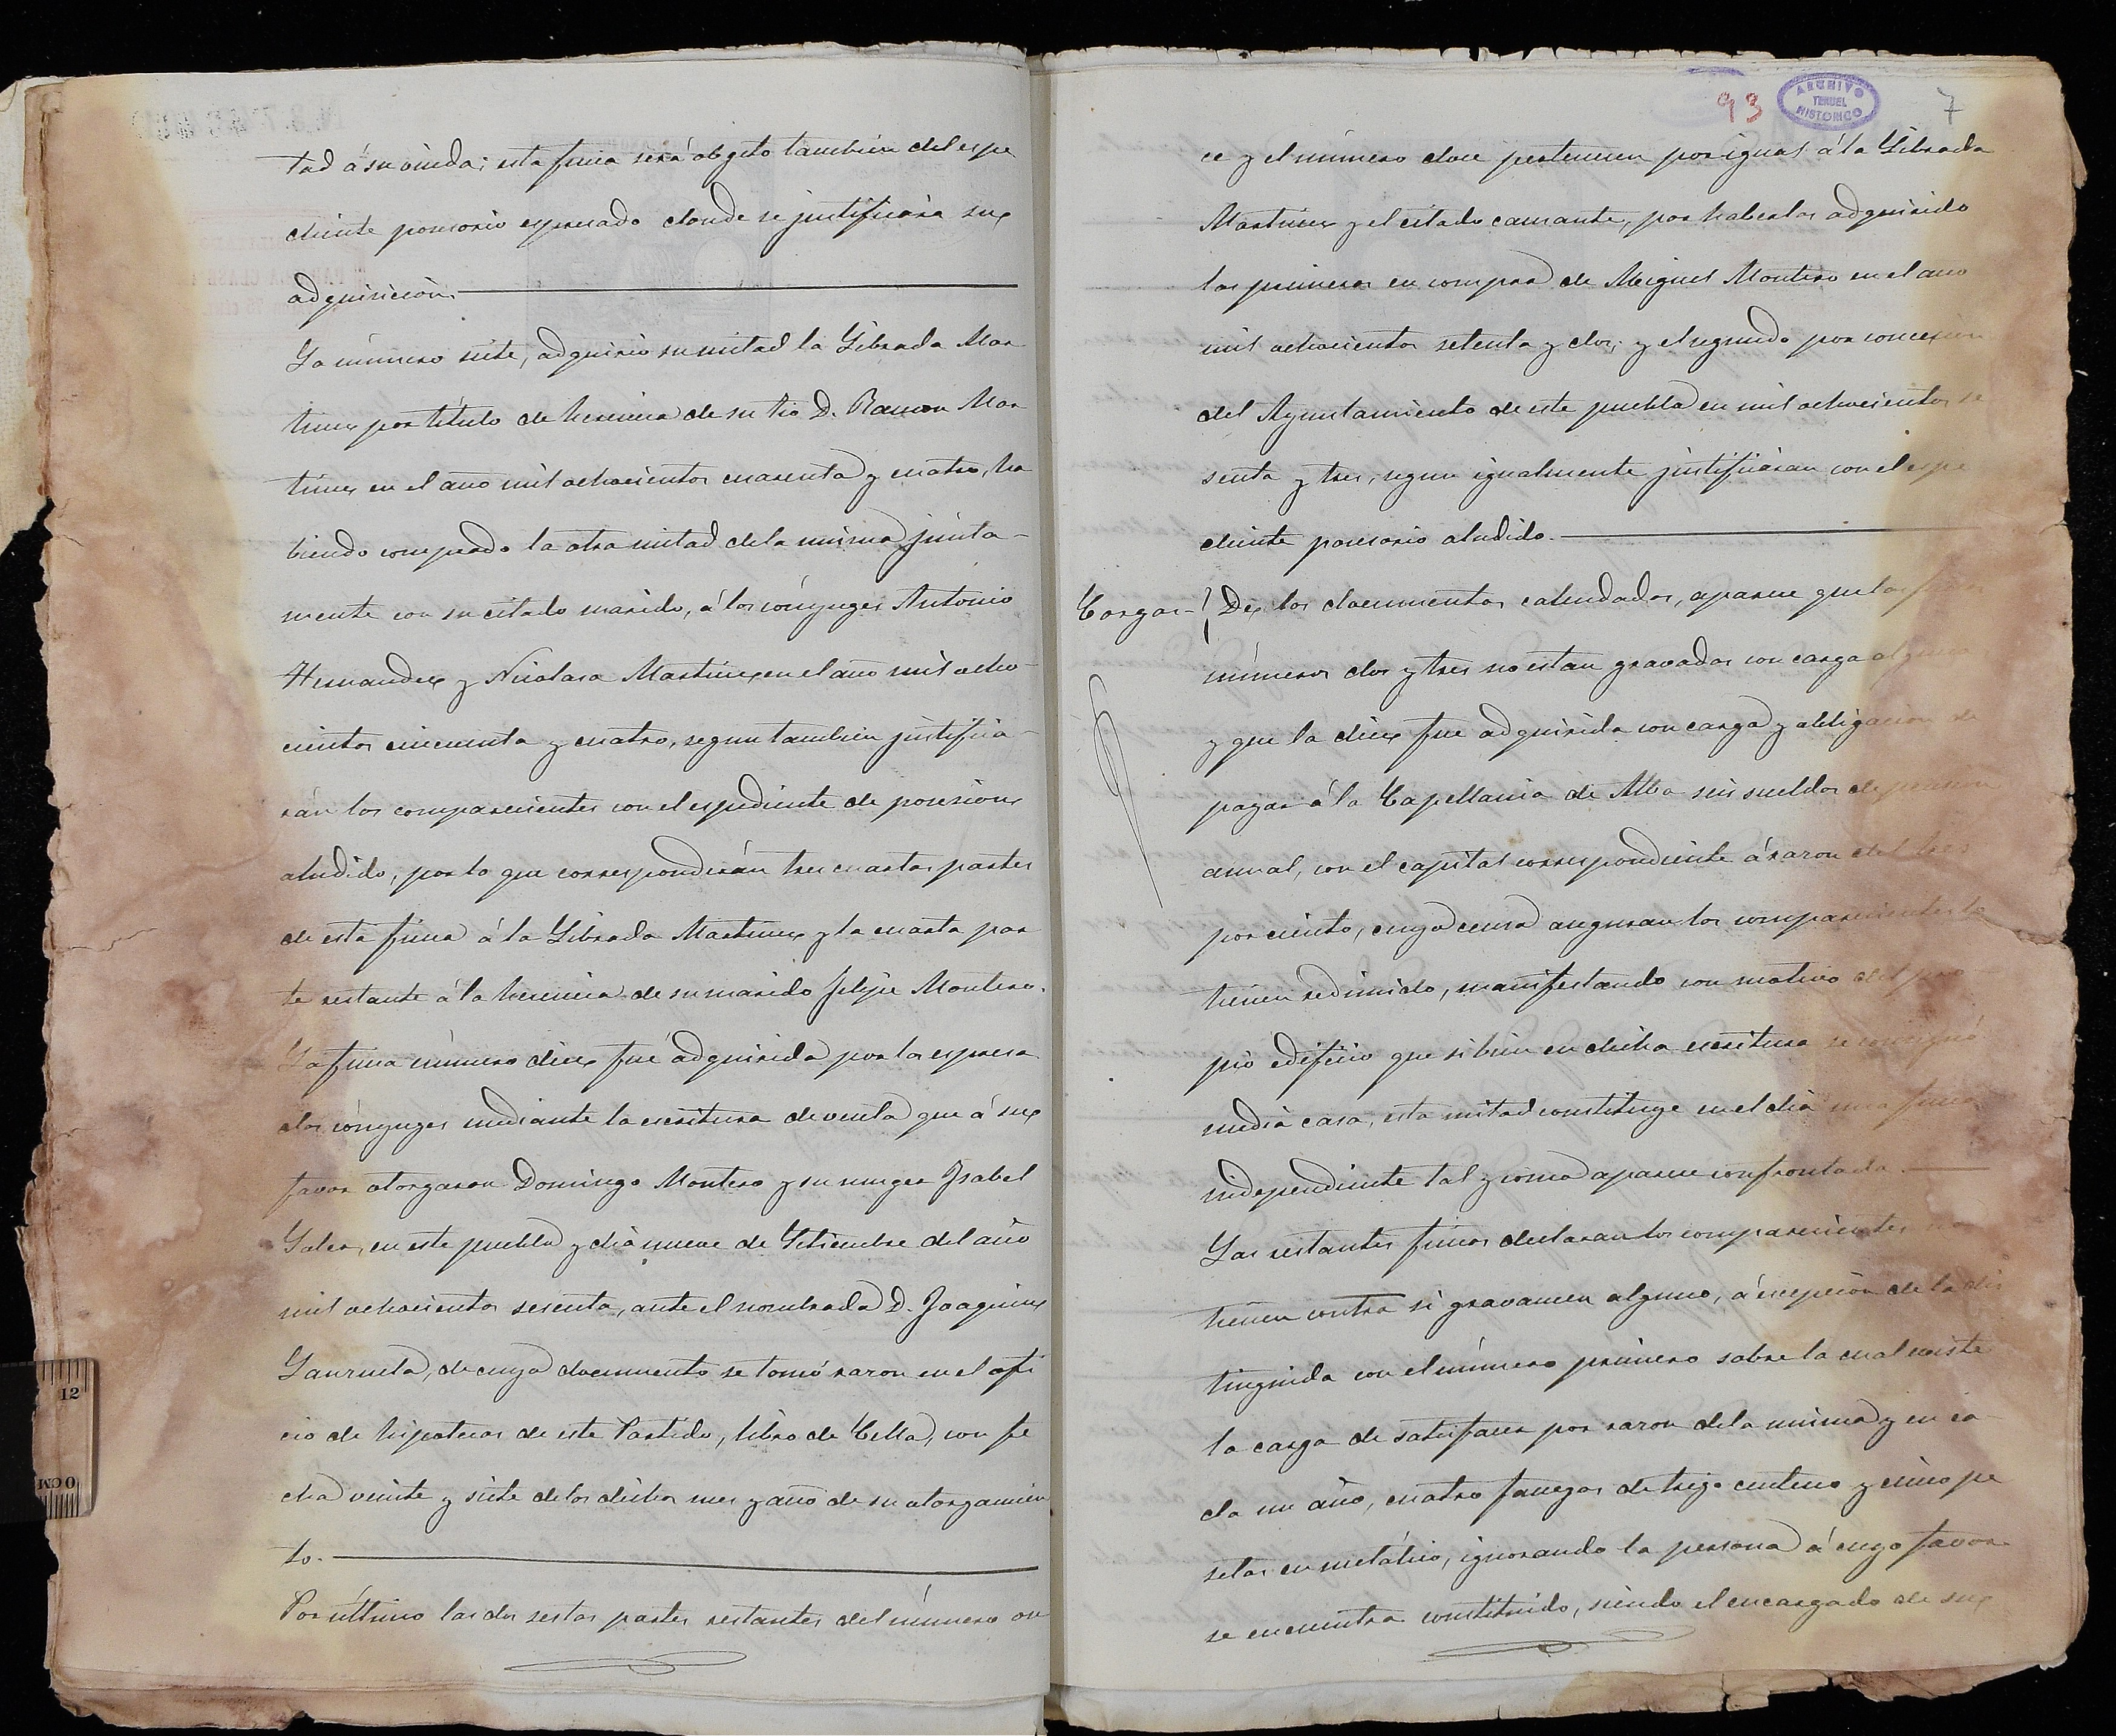 tad á su viuda; esta finca será obgeto tambien del espe
diente posesorio espresado donde se justificara su
adquisicion.
La número siete, adquirió su mitad la Librada Mar
tinez por título de herencia de su tio D. Ramon Mar
tinez en el año mil ochocientos cuarenta y cuatro, ha
biendo comprado la otra mitad de la misma, junta-
mente con su citado marido, á los cónyuges Antonio
Hernandez y Nicolasa Martinez en el año mil ocho-
cientos cincuenta y cuatro, segun tambien justifica-
rán los comparecientes con el espediente de posesion
aludido, por lo que corresponderán tres cuartas partes
de esta finca á la Librada Martinez y la cuarta par
te restante á la herencia de su marido Felipe Montero.
La finca número diez fué adquirida por los espresa
dos cónyuges mediante la escritura de venta que á su
favor otorgaron Domingo Montero y su muger Isabel
Soler, en este pueblo y dia nueve de Setiembre del año
mil ochocientos sesenta, ante el nombrado D. Joaquin
Lanzuela, de cuyo documento se tomó razon en el ofi
cio de hipotecas de este Partido, libro de Cella, con fe
cha veinte y siete de los dichos mes y año de su otorgamien
to.
Por último las dos sestas partes restantes del número on
93
ARCHIVO
TERUEL
HISTORICO
7
ce y el número doce pertenecen por igual á la Librada
Martinez y el citado causante, por haberlos adquirido
los primeros en compra de Miguel Montero en el año
mil ochocientos setenta y dos; y el segundo por concesion
del Ayuntamiento de este pueblo en mil ochocientos se
senta y tres, segun igualmente justificaran con el espe
diente posesorio aludido.
Cargas- De los documentos calendados, aparece que las fincas
números dos y tres no estan gravadas con carga alguna
y que la diez fue adquirida con carga y obligacion de
pagar á la Capellania de Alba seis sueldos de pension
annal, con el capital correspondiente á razon del tres
por ciento, cuyo censo aseguran los comparecientes lo
tienen redimido, manifestando con motivo del pro
pio edificio que si bien en dicha escritura se consignó
media casa, esta mitad constituye en el dia una finca
independiente tal y como aparece confrontada.
Las restantes fincas declaran los comparecientes no
tienen contra si gravamen alguno, á escepcion de la dis
tinguida con el número primero sobre la cual existe
la carga de satisfacer por razon de la misma y en ca
da un año, cuatro fanegas de trigo centeno y cinco pe
setas en metálico, ignorando la persona á cuyo favor
se encuentra constituido, siendo el encargado de su